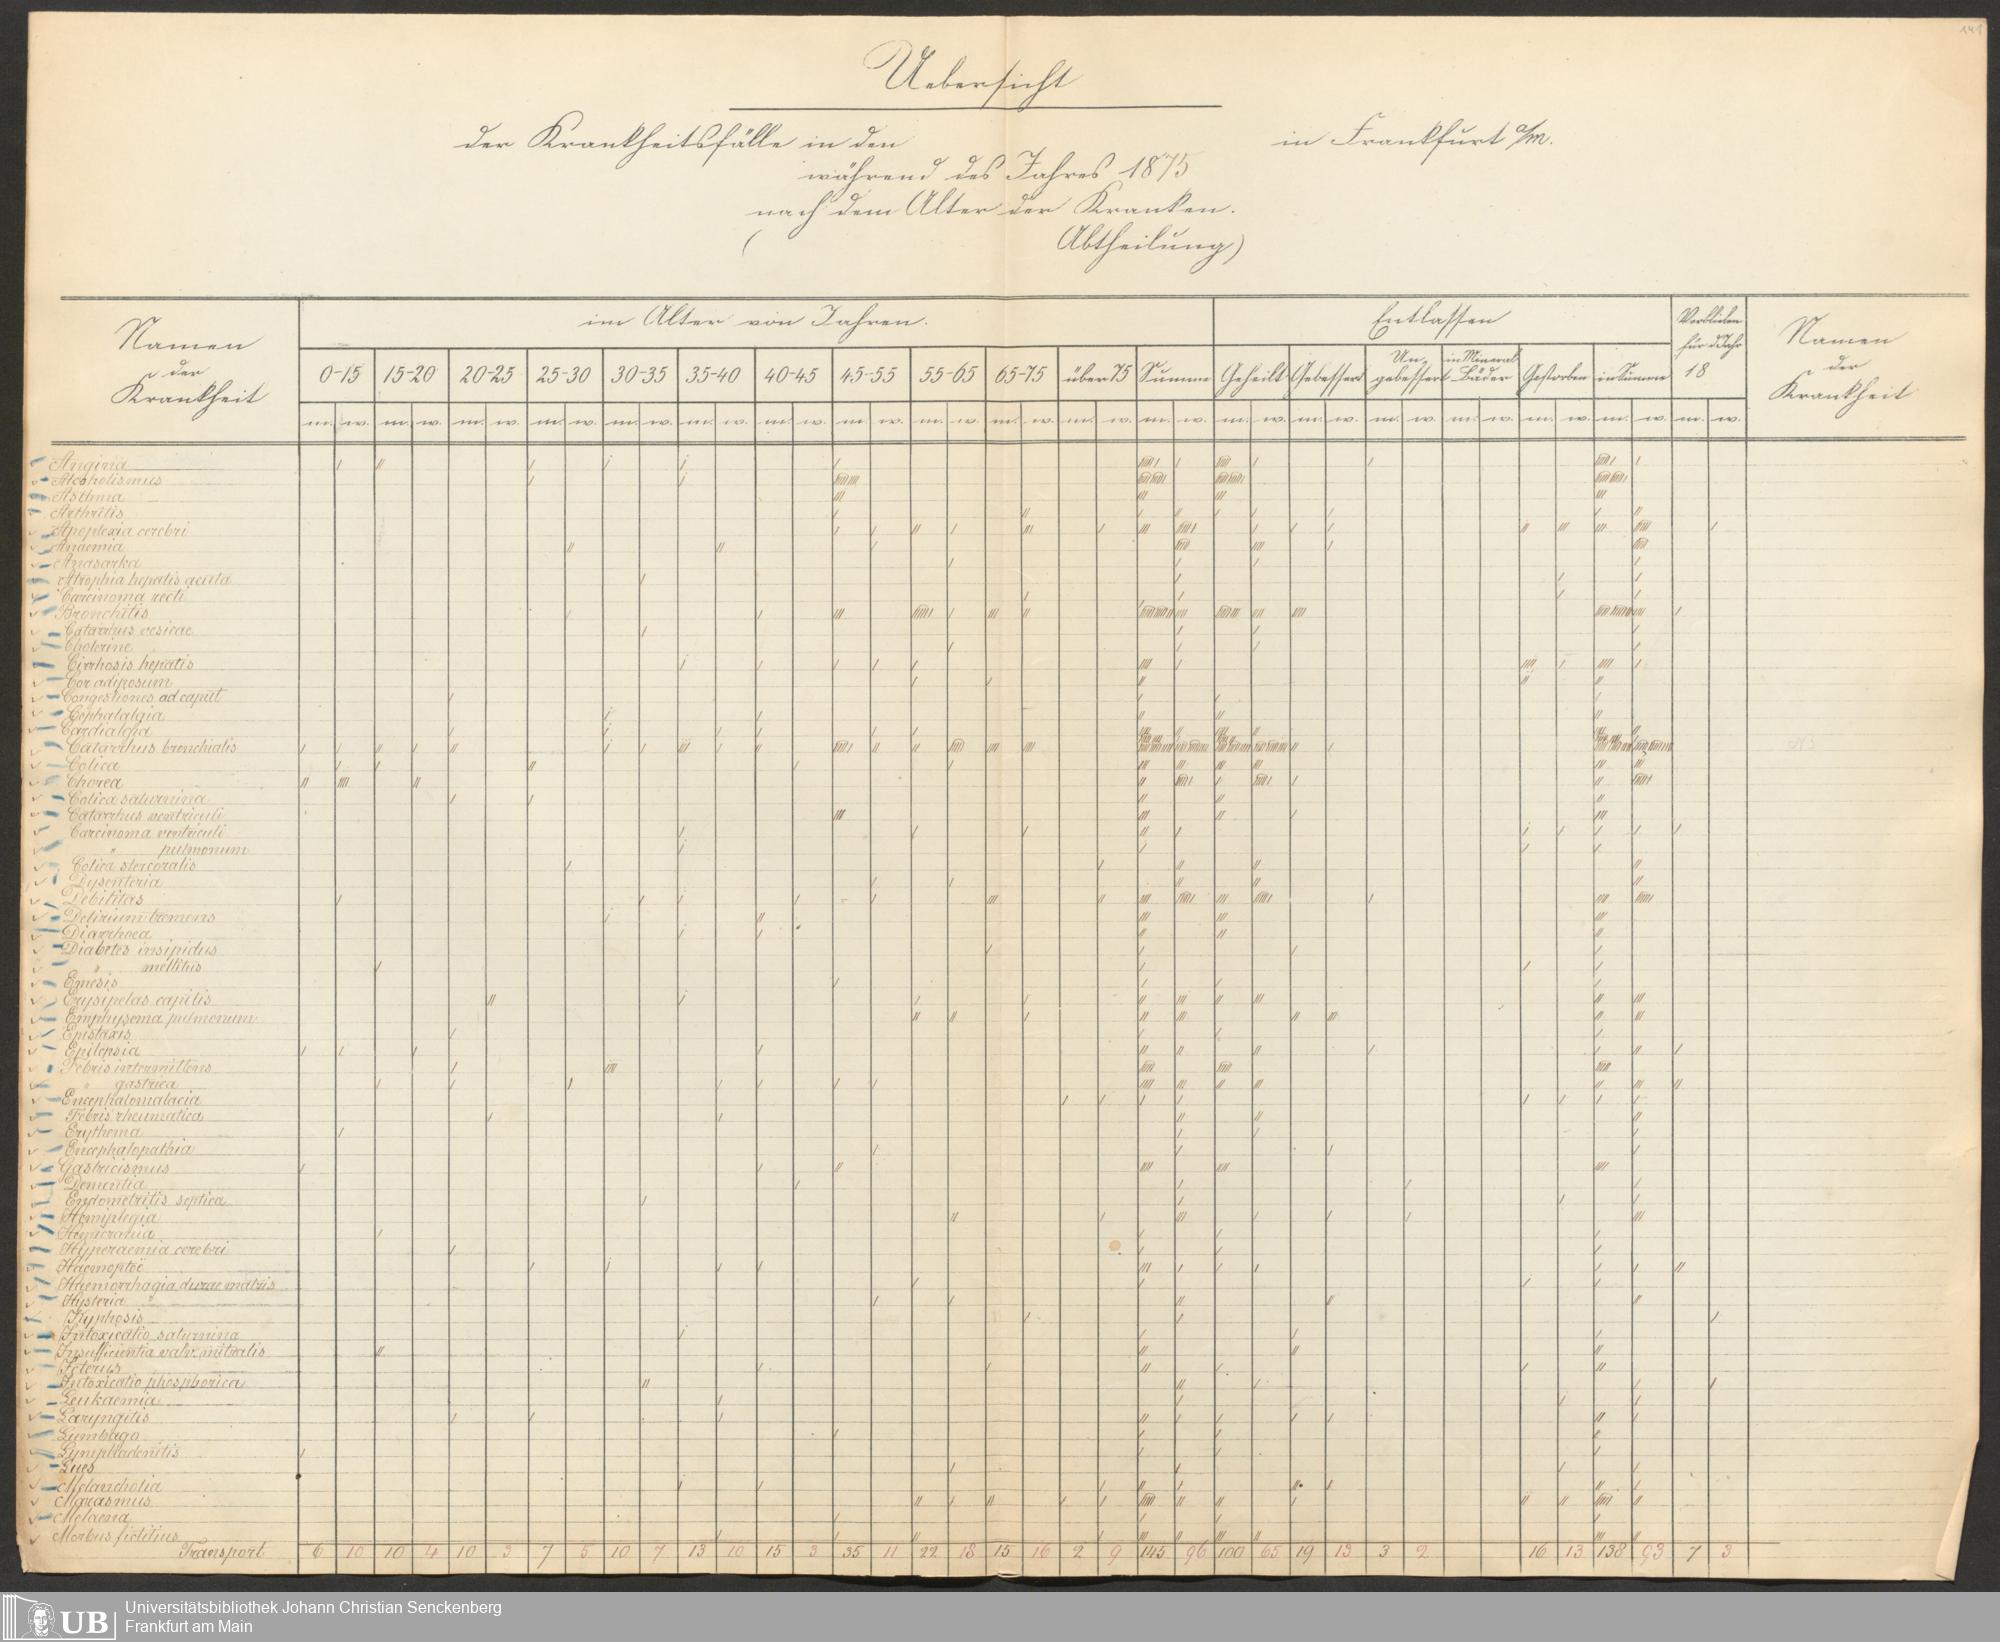 141
Uebersicht
der Krankheitsfälle in den in Frankfurt a/m.
während des Jahres 1875
nach dem Alter der Kranken.
( Abtheilung)
Namen der Krankheit
im Alter von Jahren.
Entlassen
Verblieben für d. Jahr 18
Namen der Krankheit
0-15 15-20 20-25 25-30 30-35 35-40 40-45 45-55 55-65 65-75 über 75 Summe Geheilt Gebessert Un-gebessert in Mineral Bäder Gestorben in Summe
m. w. m. w. m. w. m. w. m. w. m. w. m. w. m. w. m. w. m. w. m. w. m. w. m. w. m. w. m. w. m. w. m. w. m. w. m. w.
Angina
Alcoholismus
Asthma
Arthritis
Apoplexia cerebri
Anaemia
Anasarka
Atrophia hepatis acuta
Carcinoma recti
Bronchitis
Catarrhus vesicae
Cholerine
Cirrhosis hepatis
Cor adiposum
Congestiones ad caput
Cephalalgia
Cardialgia
Catarrhus bronchialis
Colica
Chorea
Colica saturnina
Catarrhus ventriculi
Carcinoma ventriculi
" pulmonum
Colica stercoralis
Dysenteria
Debilitas
Delirium tremens
Diarrhoea
Diabetes insipidus
" mellitus
Emesis
Erysipelas capitis
Emphysema pulmonum
Epistaxis
Epilepsia
Febris intermittens
" gastrica
Encephalomalacia
Febris rheumatica
Erythema
Encephalopathia
Gastricismus
Dementia
Endometritis septica
Hemiplegia
Hemicrania
Hyperaemia cerebri
Haemoptoë
Haemorrhagia durae matris
Hysteria
Kyphosis
Intoxicatio saturnina
Insufficientia valv. mitralis
Icterus
Intoxicatio phosphorica
Leukaemia
Laryngitis
Lumbago
Lymphadenitis
Lues
Melancholia
Marasmus
Melaena
Morbus fictitius
Transport 6 10 10 4 10 3 7 5 10 7 13 10 15 3 35 11 22 18 15 16 2 9 145 96 100 65 19 13 3 2 16 13 138 93 7 3
UB
Universitätsbibliothek Johann Christian Senckenberg
Frankfurt am Main